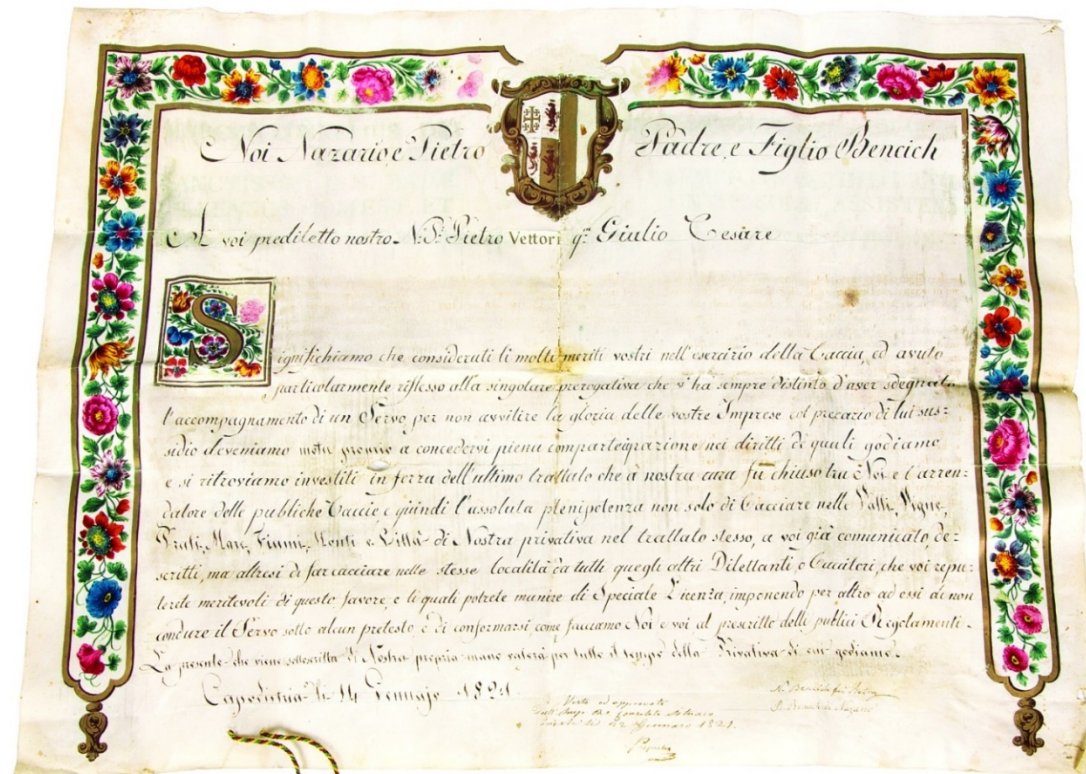 Noi Nazario, e Pietro Padre, e Figlio Bencich
A voi prediletto nostro N. S. Pietro Vettori q.m Giulio Cesare
Significhiamo che considerati li molti meriti vostri nell'esercizio della Caccia, ed avuto
particolarmente riflesso alla singolare prerogativa che v'ha sempre distinto d'aver sdegnato
l'accompagnamento di un Servo per non avvilire la gloria delle vostre Imprese col precario di lui sus=
sidio deveniamo motu proprio a concedervi piena comparteciprazione nei diritti di quali godiamo
e si ritroviamo investiti in forza dell'ultimo trattato che à nostra cara fù chiuso tra Noi e l'arren=
datore delle publiche Caccie e quindi l'assoluta plenipotenza non solo di Cacciare nelle Valli, Vigne,
Prati, Mare, Fiumi, Monti e Città di Nostra privativa nel trattato stesso, a voi già comunicato, de=
scritti, ma altresi di far cacciare nelle stesse località da tutti quegli altri Dilettanti, o Cacitori, che voi repu=
terete meritevoli di questo favore, e li quali potrete munire di Speciale Licenza, imponendo per altro ad essi di non
condure il Servo sotto alcun pretesto e di conformarsi, come facciamo Noi e voi al prescritto delli publici Regolamenti.
La presente che viene sottoscritta di Nostra propria mano valerà per tutto il tempo della Privativa di cui godiamo.
Capodistria li 14 Gennajo 1821.
Visto ed approvato
22 Gennaro 1821.